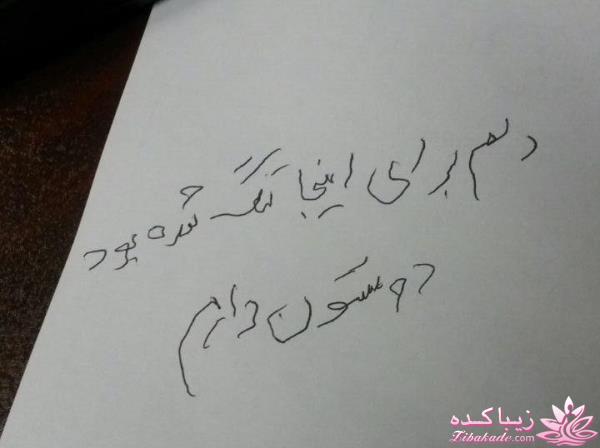 دلم برای اینجا تنگ شده بود
دوستون دارم
زیباکده
Zibakade.com